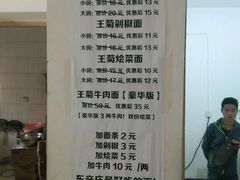 小碗：原价 18 元 优惠后 13 元
大碗：原价 20 元 优惠后 15 元
王菊剁椒面
小碗：原价 16 元 优惠后 11 元
大碗：原价 18 元 优惠后 13 元
王菊烩菜面
小碗：原价 15 元 优惠后 10 元
大碗：原价 17 元 优惠后 12 元
王菊牛肉面【豪华版】
原价 50 元 优惠后 35 元
【豪华版 3 两牛肉！双份烩菜】
加面条 2 元
加剁椒 3 元
加烩菜 5 元
加牛肉 10 元 /两